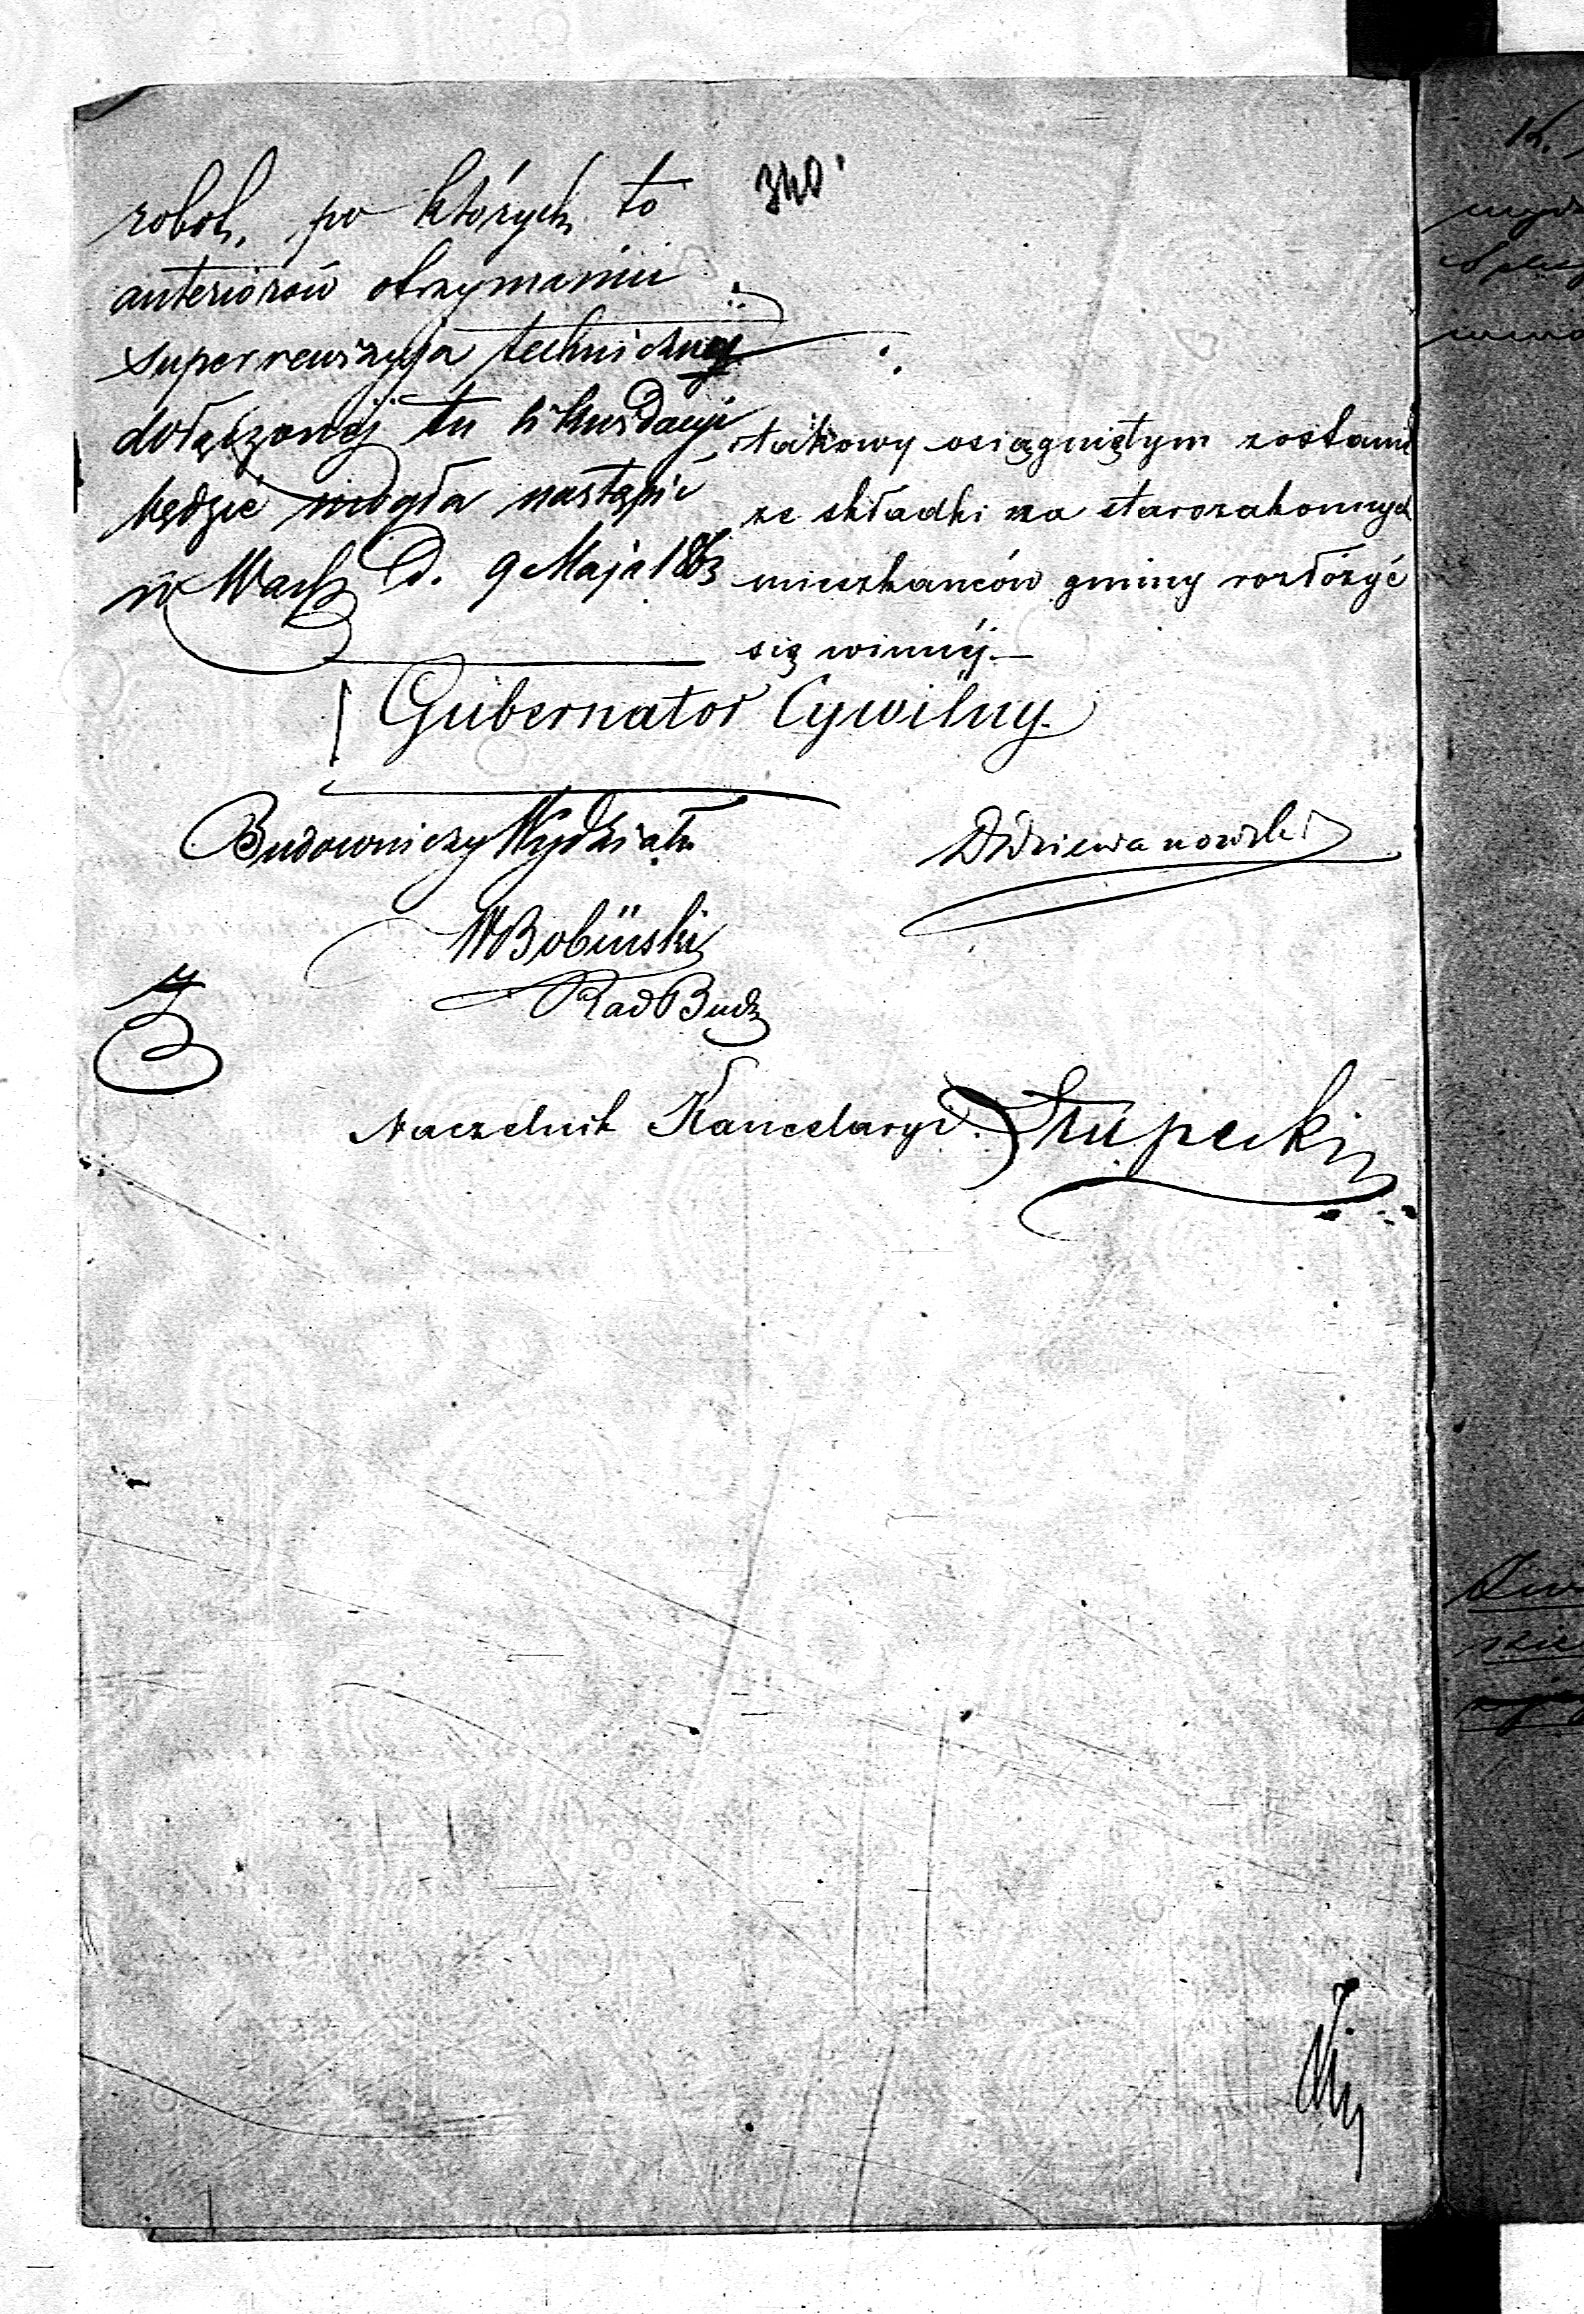 340
robot, po których to
anteriorów otrzymaniu
superrewizyja technicznej
dołączonej tu likwidacyi
będzie mogła nastąpić
w Warsz d. 9 Maja 1863
takowy osiągniętym zostanie
ze składki na starozakonnych
mieszkańców gminy rozłożyć
się winnej.
Gubernator Cywilny
Budowniczy Wydziału
Dziewanowski
WBobiński
Rad Bud
Naczelnik Kancelaryi
Słupecki